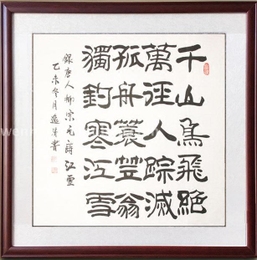 千山鳥飛絕
萬徑人踪滅
孤舟蓑笠翁
獨釣寒江雪
錄唐人柳宗元詩江雪
乙未冬月